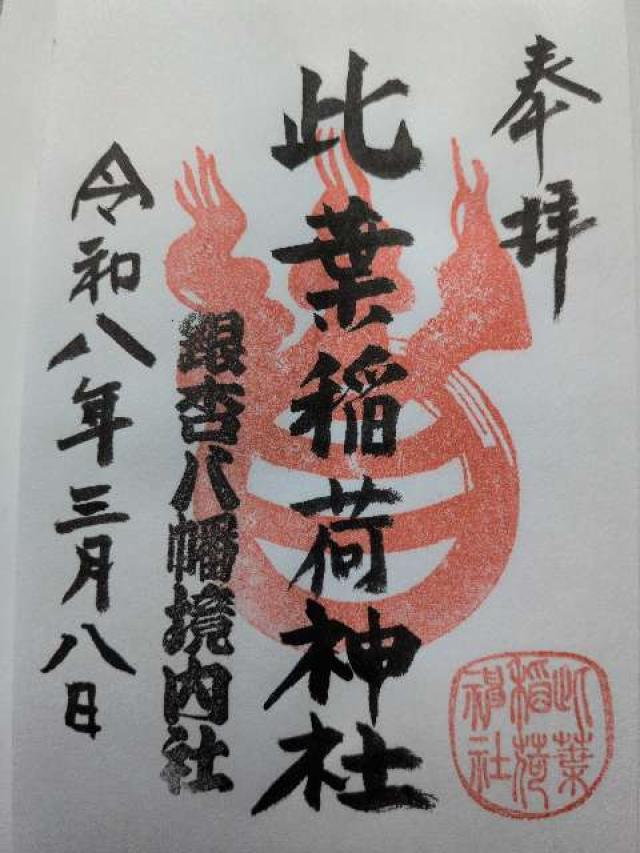 奉拝
此葉稲荷神社
銀杏八幡境内社
令和八年三月八日
此葉
稲荷
神社